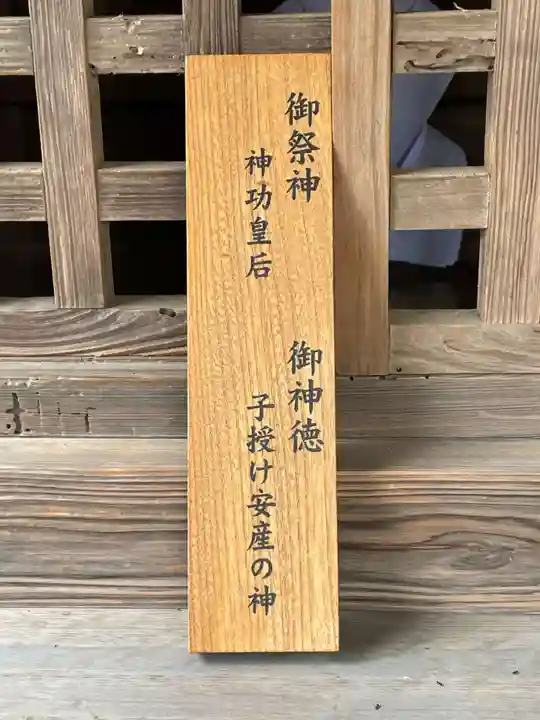 御祭神
神功皇后
御神徳
子授け安産の神